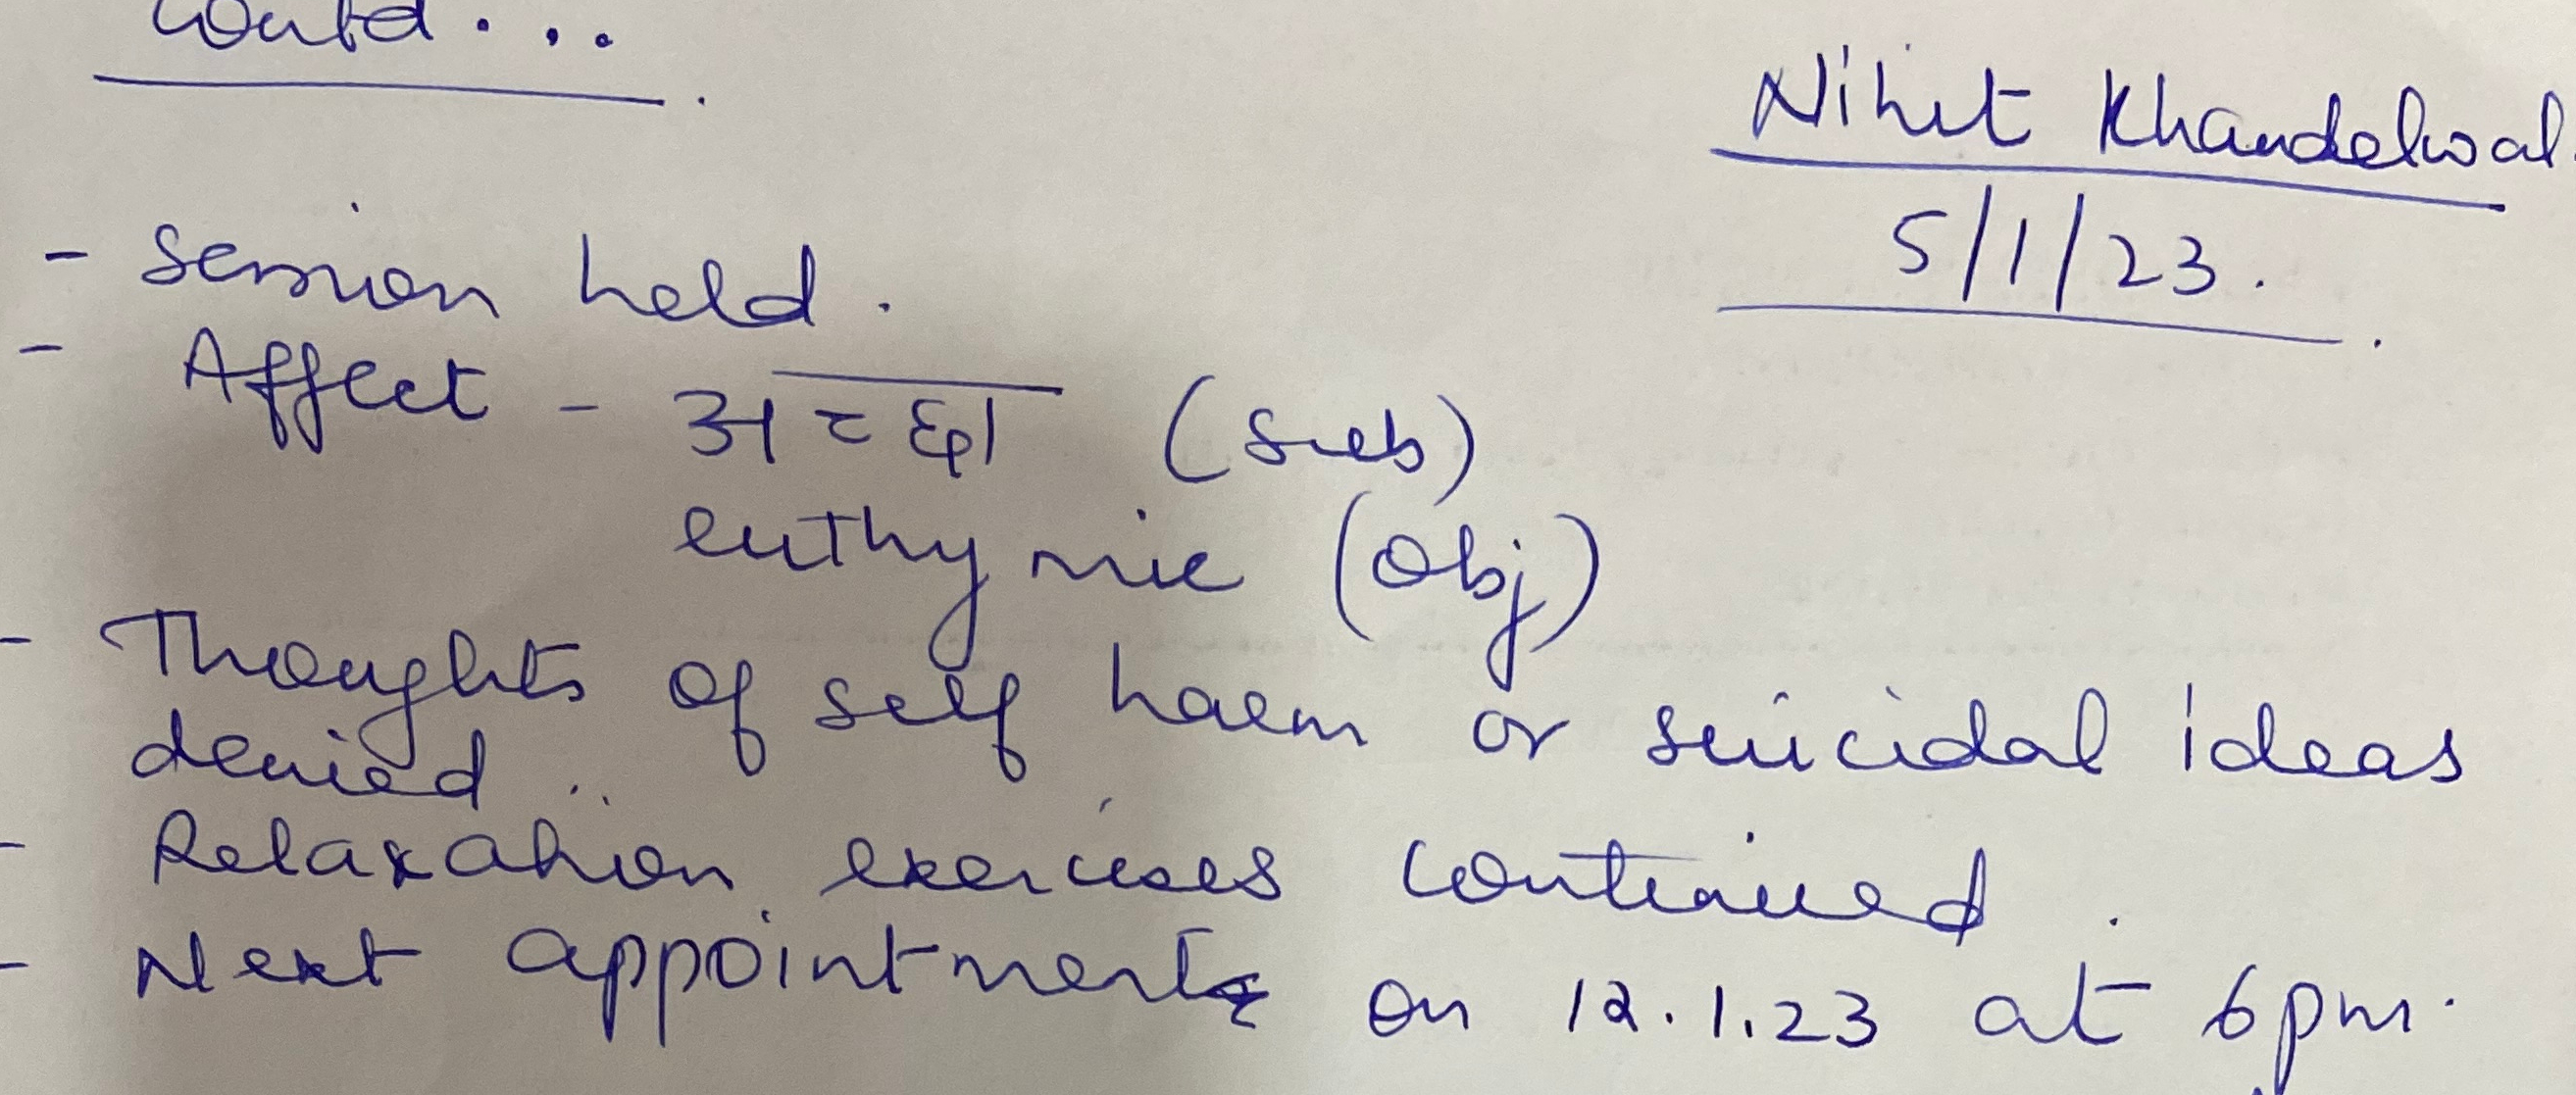 Contd...
Nihit Khandelwal.
5/1/23.
- Session held.
- Affect - अच्छा (sub)
euthymic (obj)
- Thoughts of self harm or suicidal ideas
denied.
- Relaxation exercises continued.
- Next appointment on 12.1.23 at 6pm.